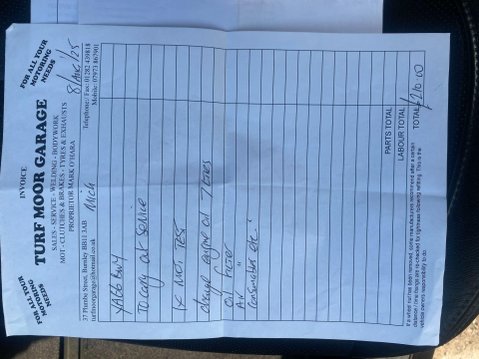 INVOICE
FOR ALL YOUR MOTORING NEEDS
TURF MOOR GARAGE
FOR ALL YOUR MOTORING NEEDS
SALES - SERVICE - WELDING - BODYWORK
MOT - CLUTCHES & BRAKES - TYRES & EXHAUSTS
PROPRIETOR MARK O'HARA
8/Aug/25
37 Plumbe Street, Burnley BB11 3AB
Telephone / Fax: 01282 439818
turfmoorgarage@hotmail.co.uk
Mobile: 07973 867901
Mich
YA66
To carry out service
MOT TEST
change engine oil 7 litres
oil filter
Air "
consumables etc.
PARTS TOTAL
LABOUR TOTAL
TOTAL £210.00
If a wheel nut has been removed, some manufacturers recommend after a certain
distance / time fixings are re-checked for tightness following refitting. This is the
vehicle owners responsibility to do.